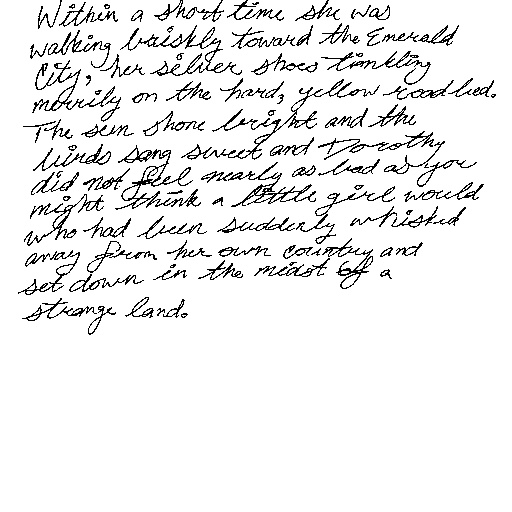 Within a short time she was
walking briskly toward the Emerald
City, her silver shoes tinkling
merrily on the hard, yellow roadbed.
The sun shone bright and the
birds sang sweet and Dorothy
did not feel nearly as bad as you
might think a little girl would
who had been suddenly whisked
away from her own country and
set down in the midst of a
strange land.